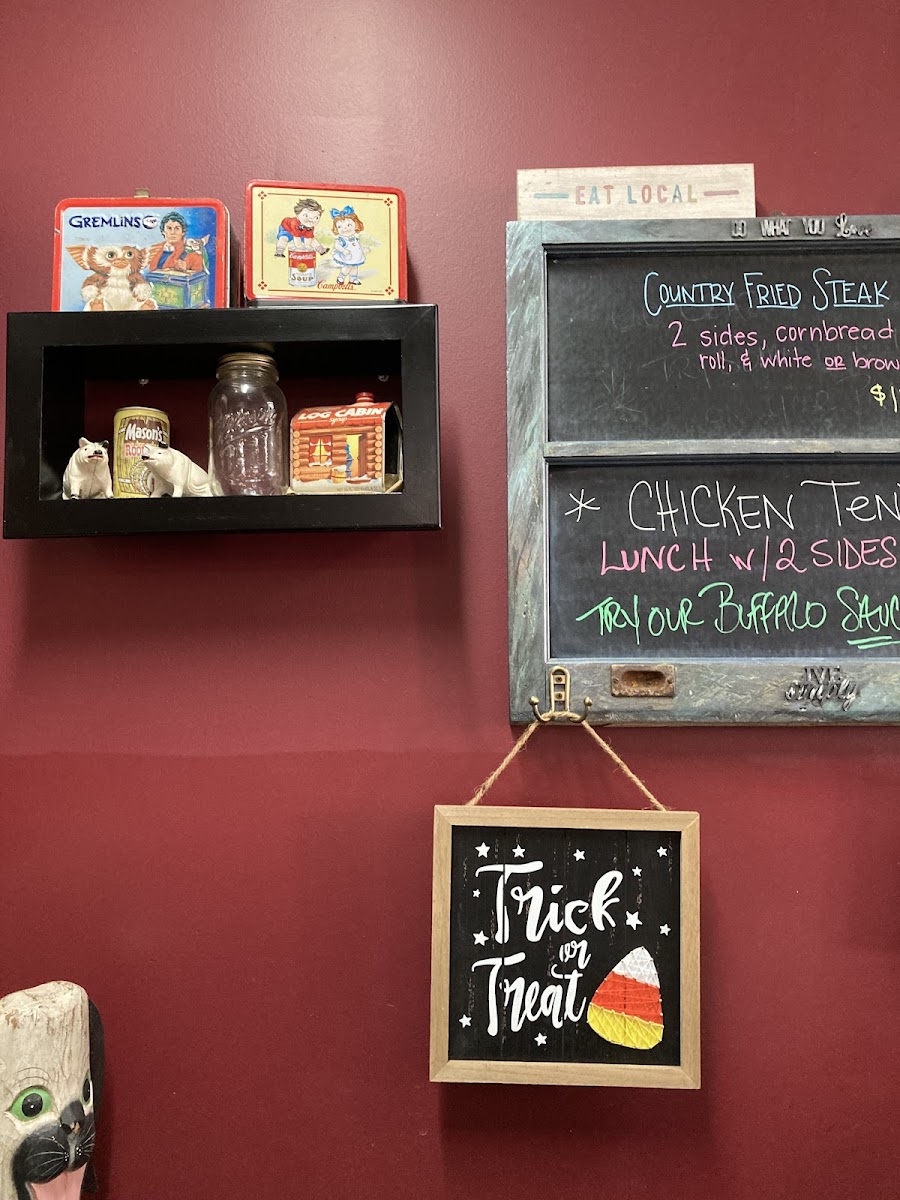 GREMLINS
Campbell's
SOUP
Campbell's
Mason's
ROO
Mason
LOG CABIN
syrup
EAT LOCAL
DO WHAT YOU Love
COUNTRY FRIED STEAK
2 sides, cornbread
roll, & white or brow
$1
* CHICKEN TEN
LUNCH W/2 SIDES
TRY OUR BUFFALO SAUC
LIVE
simply
Trick
or
Treat